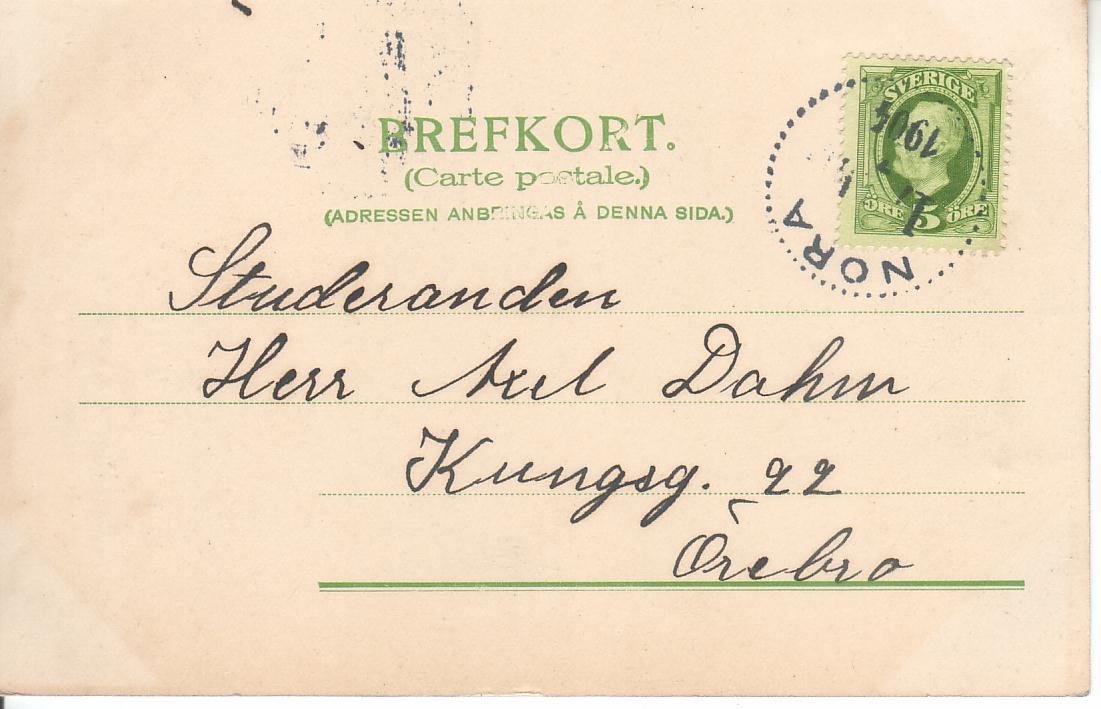 BREFKORT.
(Carte postale.)
(ADRESSEN ANBRINGAS Å DENNA SIDA.)
SVERIGE
ÖRE 5 ÖRE
NORA
Studeranden
Herr Axel Dahm
Kungsg. 22
Örebro